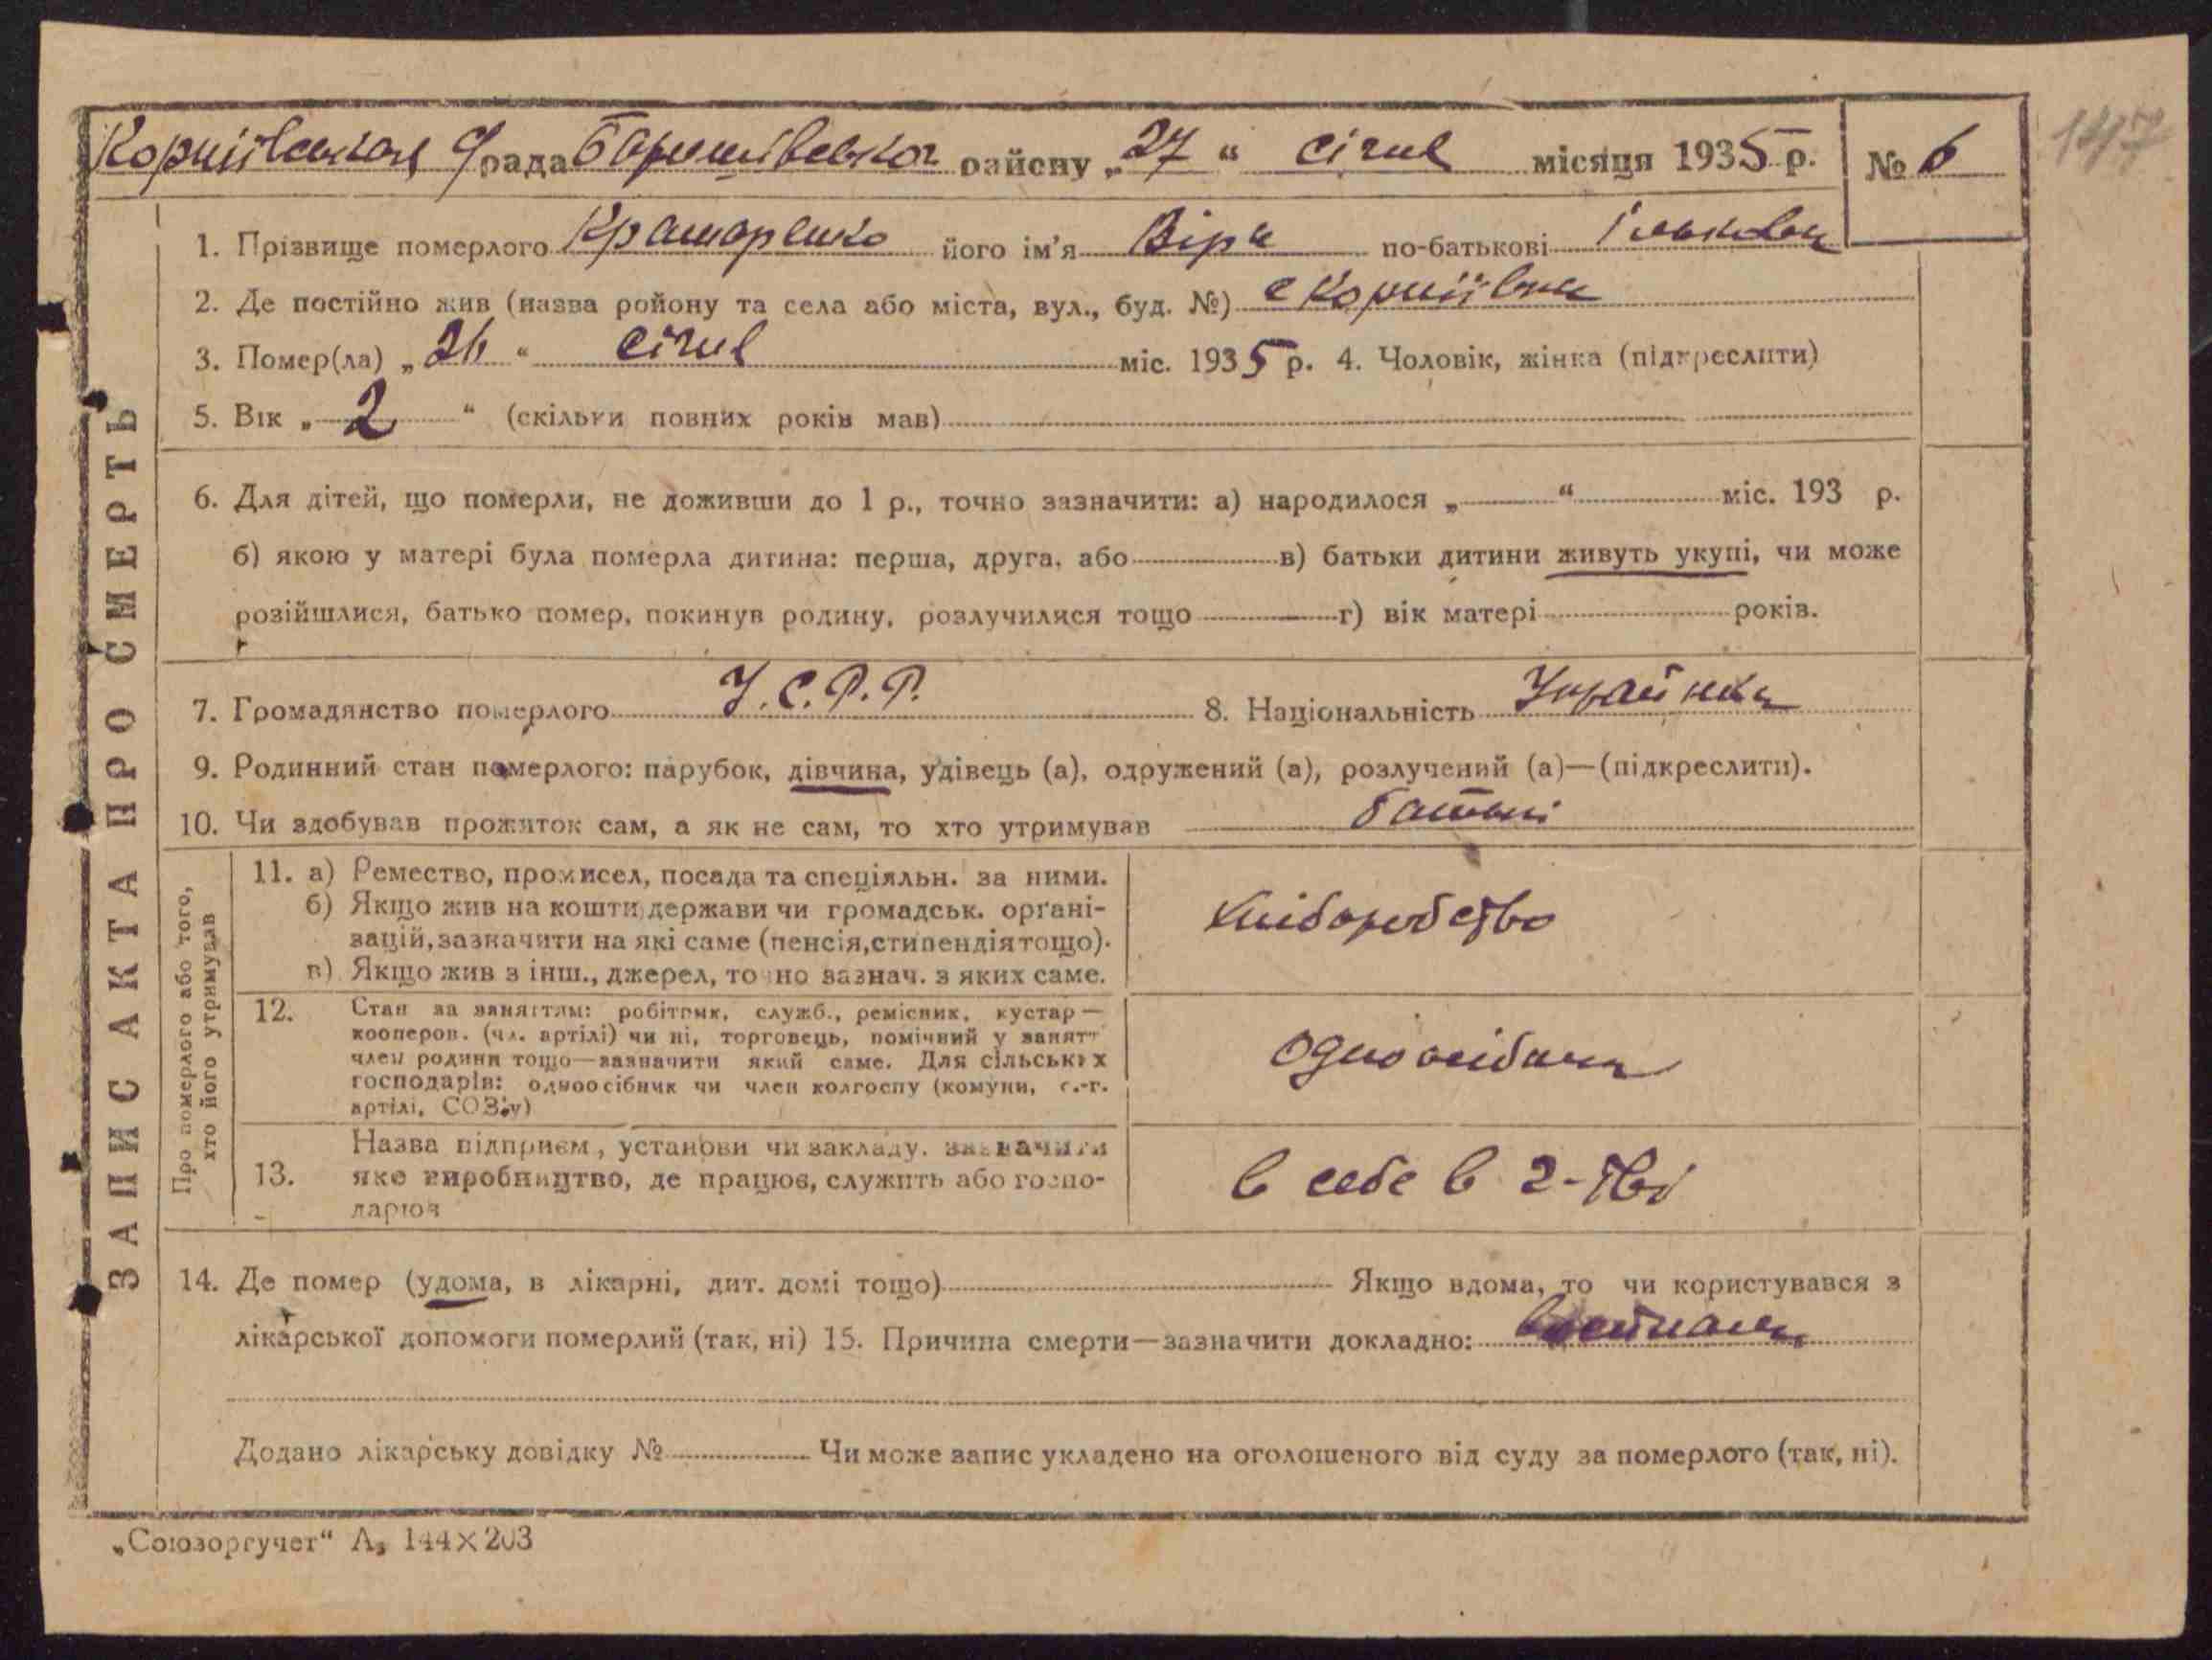 Корніївська с/рада Баришівсько району „27“ січня місяця 1935 р. № 6
147
1. Прізвище померлого Крамаренко його ім'я Віра по-батькові
2. Де постійно жив (назва ройону та села або міста, вул., буд. №) с Корніївка
3. Помер(ла) „26“ січня міс. 1935 р. 4. Чоловік, жінка (підкреслити)
5. Вік „2“ (скільки повних років мав)
6. Для дітей, що померли, не доживши до 1 р., точно зазначити: а) народилося „ “ міс. 193 р.
б) якою у матері була померла дитина: перша, друга, або в) батьки дитини живуть укупі, чи може
розійшлися, батько помер, покинув родину, розлучилися тощо г) вік матері років.
7. Громадянство померлого У.С.Р.Р. 8. Національність Українка
9. Родинний стан померлого: парубок, дівчина, удівець (а), одружений (а), розлучений (а)—(підкреслити).
10. Чи здобував прожиток сам, а як не сам, то хто утримував батьки
ЗАПИС АКТА ПРО СМЕРТЬ
Про померлого або того,
хто його утримував
11. а) Ремество, промисел, посада та спеціяльн. за ними.
б) Якщо жив на кошти держави чи громадськ. органі-
зацій, зазначити на які саме (пенсія, стипендія тощо).
в) Якщо жив з інш., джерел, точно зазнач. з яких саме.
хліборобство
12. Стан за заняттям: робітник, служб., ремісник, кустар—
кооперов. (чл. артілі) чи ні, торговець, помічний у занятт
член родини тощо—зазначити який саме. Для сільських
господарів: одноосібник чи член колгоспу (комуни, с.-г.
артілі, СОЗ'у)
одноосібник
13. Назва підприєм, установи чи закладу. зазначити
яке виробництво, де працює, служить або госпо-
дарює
в себе в г-тві
14. Де помер (удома, в лікарні, дит. домі тощо) Якщо вдома, то чи користувався з
лікарської допомоги померлий (так, ні) 15. Причина смерти—зазначити докладно:
Додано лікарську довідку № Чи може запис укладено на оголошеного від суду за померлого (так, ні).
„Союзоргучет“ А₅ 144×203